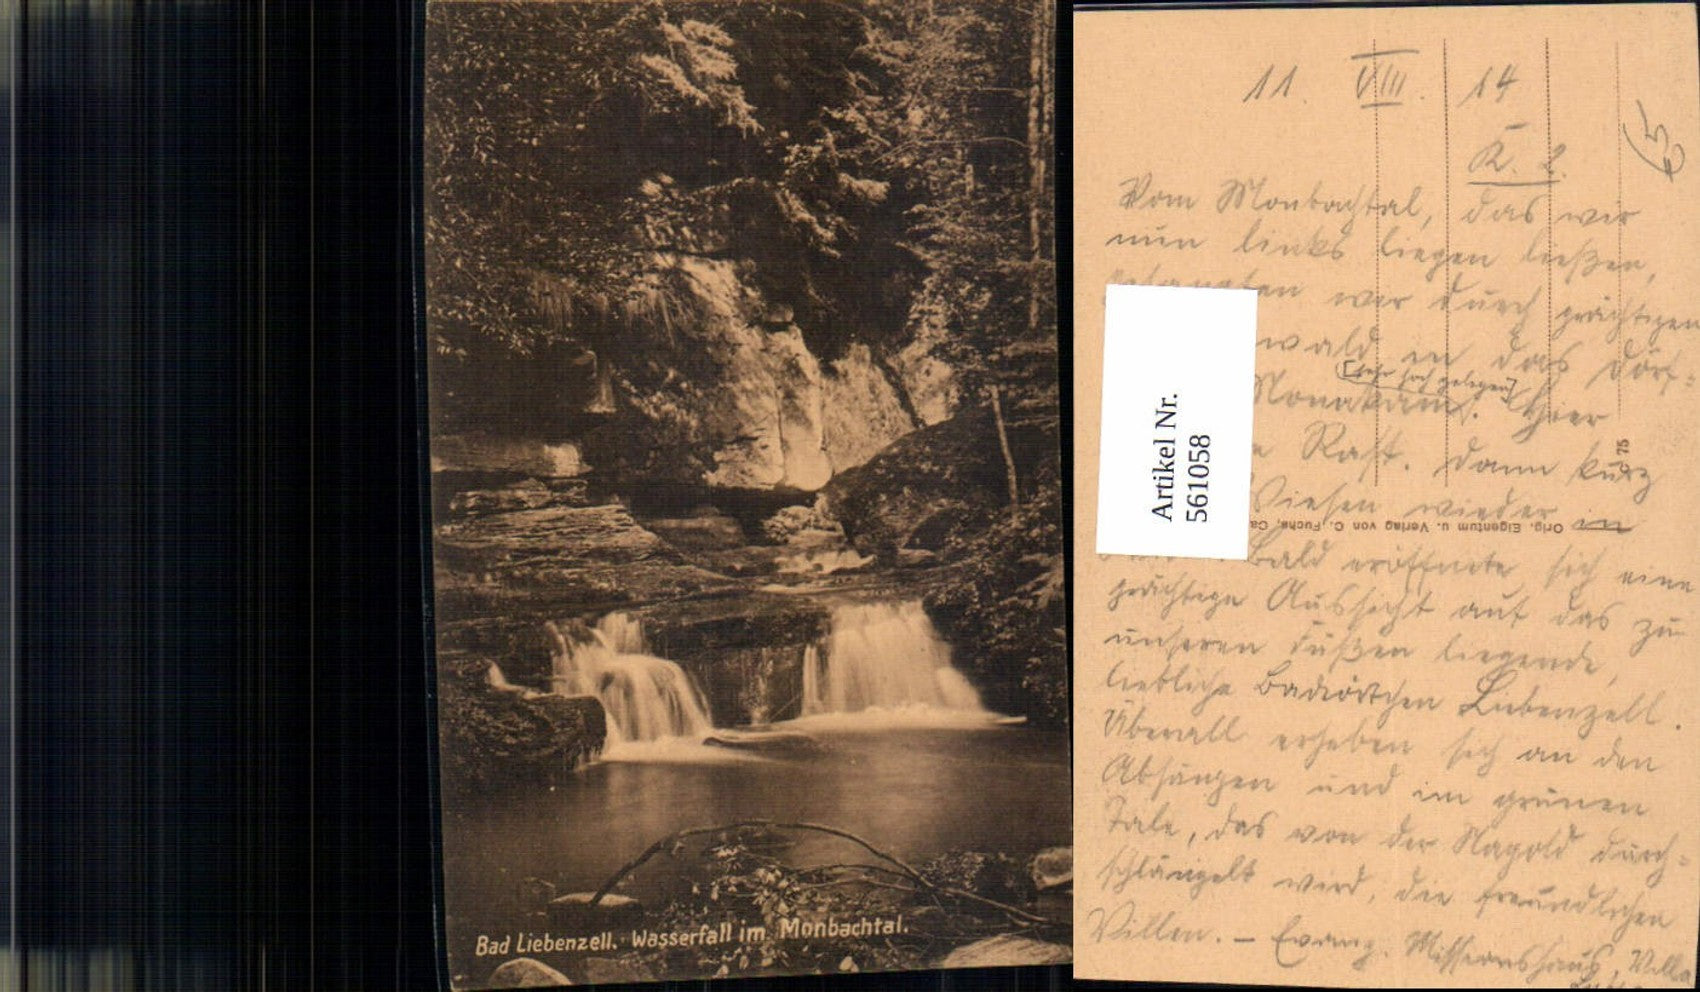 Bad Liebenzell. Wasserfall im Monbachtal.
11. VIII. 14
K. 2.
Vom Monbachtal, das wir
nun links liegen ließen,
wir durch prächtigen
wald in das Dörf-
[sehr hoch gelegen]
Monakam. Hier
Rast. Dann kurz
Wiesen wieder in
Bald eröffnete sich eine
prächtige Aussicht auf das zu
unseren Füßen liegende,
liebliche Badeörtchen Liebenzell.
Überall erheben sich an den
Abhängen und im grünen
Tale, das von der Nagold durch-
schlängelt wird, die freundlichen
Villen. – Evang. Missionshaus, Villa
Artikel Nr.
561058
Orig. Eigentum u. Verlag von C. Fuchs, Ca
75